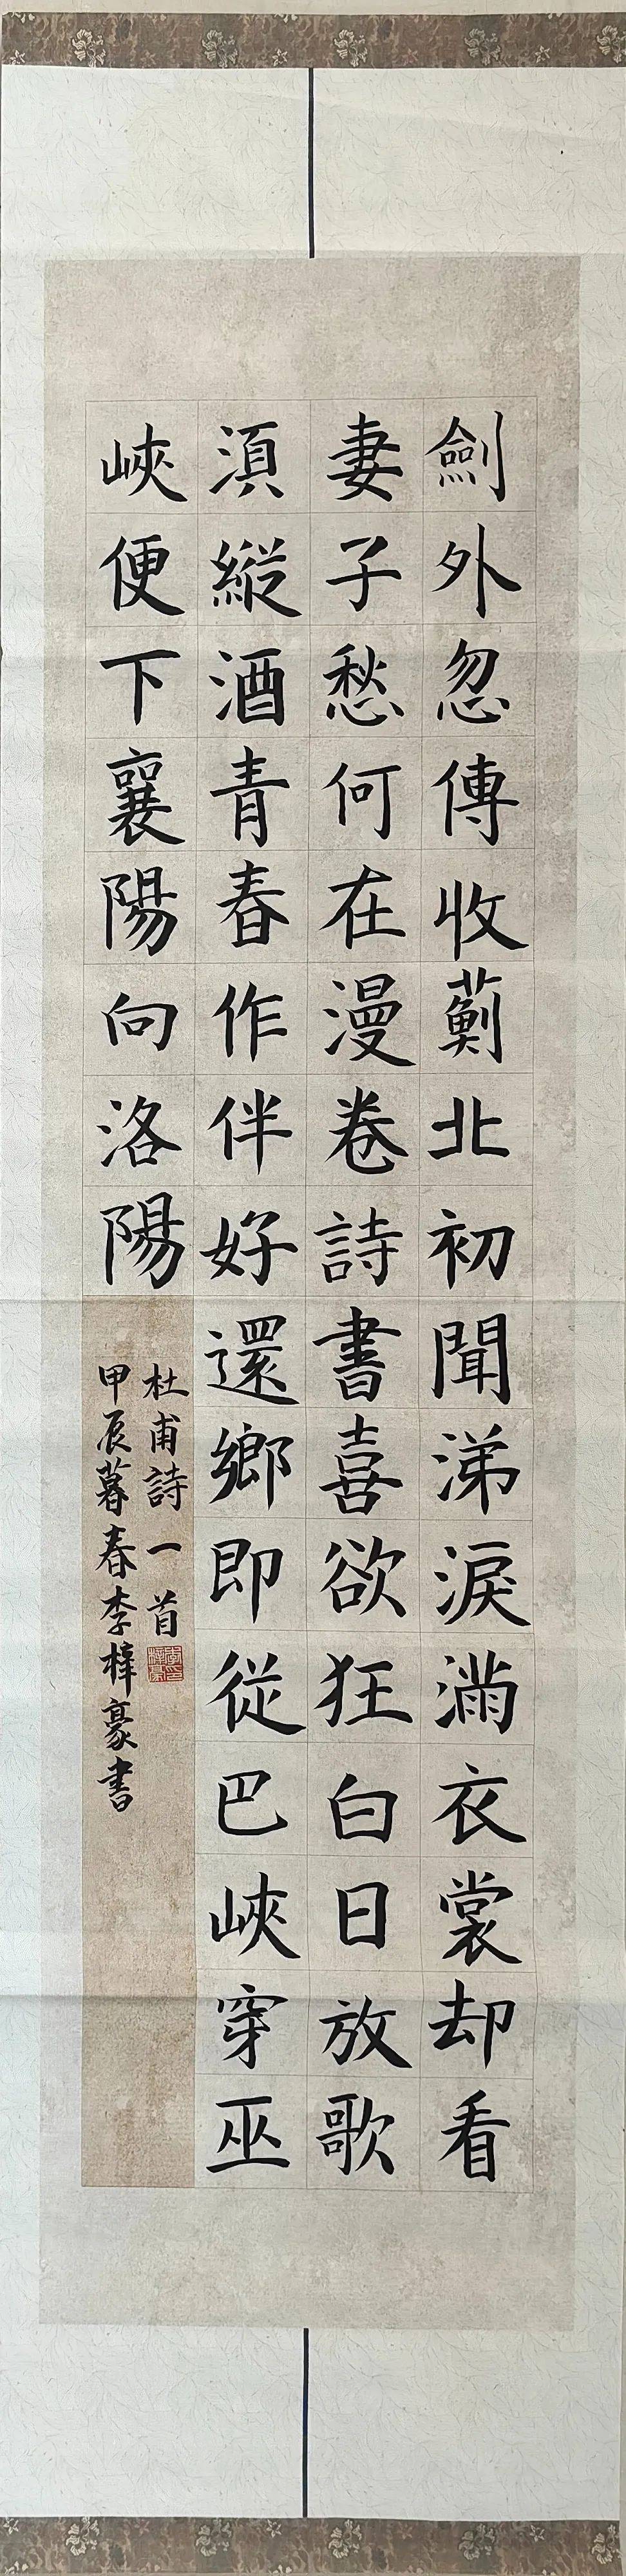 劍外忽傳收薊北初聞涕淚滿衣裳却看
妻子愁何在漫卷詩書喜欲狂白日放歌
須縱酒青春作伴好還鄉即從巴峽穿巫
峽便下襄陽向洛陽
杜甫詩一首
甲辰暮春李梓豪書